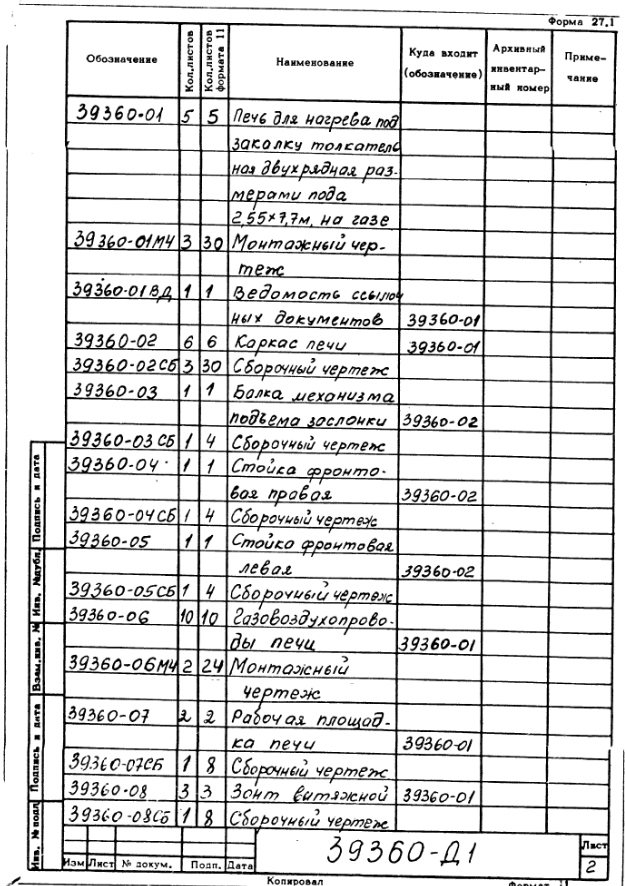 Форма 27.1
Обозначение Кол.листов Кол.листов формата 11 Наименование Куда входит (обозначение) Архивный инвентарный номер Примечание
39360-01 5 5 Печь для нагрева под
закалку толкатель
ная двухрядная раз-
мерами пода
2,55×7,7м, на газе
39360-01МЧ 3 30 Монтажный чер-
теж
39360-01ВД 1 1 Ведомость ссылоч
ных документов 39360-01
39360-02 6 6 Каркас печи 39360-01
39360-02СБ 3 30 Сборочный чертеж
39360-03 1 1 Балка механизма
подъема заслонки 39360-02
39360-03СБ 1 4 Сборочный чертеж
39360-04 1 1 Стойка фронто-
вая правая 39360-02
39360-04СБ 1 4 Сборочный чертеж
39360-05 1 1 Стойка фронтовая
левая 39360-02
39360-05СБ 1 4 Сборочный чертеж
39360-06 10 10 Газовоздухопрово-
ды печи 39360-01
39360-06МЧ 2 24 Монтажный
чертеж
39360-07 2 2 Рабочая площад-
ка печи 39360-01
39360-07СБ 1 8 Сборочный чертеж
39360-08 3 3 Зонт вытяжной 39360-01
39360-08СБ 1 8 Сборочный чертеж
Подпись и дата
Инв. №дубл.
Взам.инв. №
Подпись и дата
Инв. № подл.
Изм Лист № докум. Подп. Дата
39360-Д1
Лист
2
Копировал
Формат 11